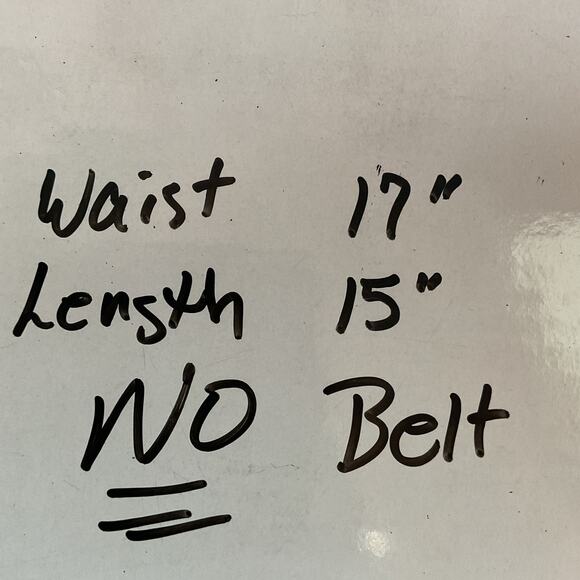 Waist 17"
Length 15"
NO Belt